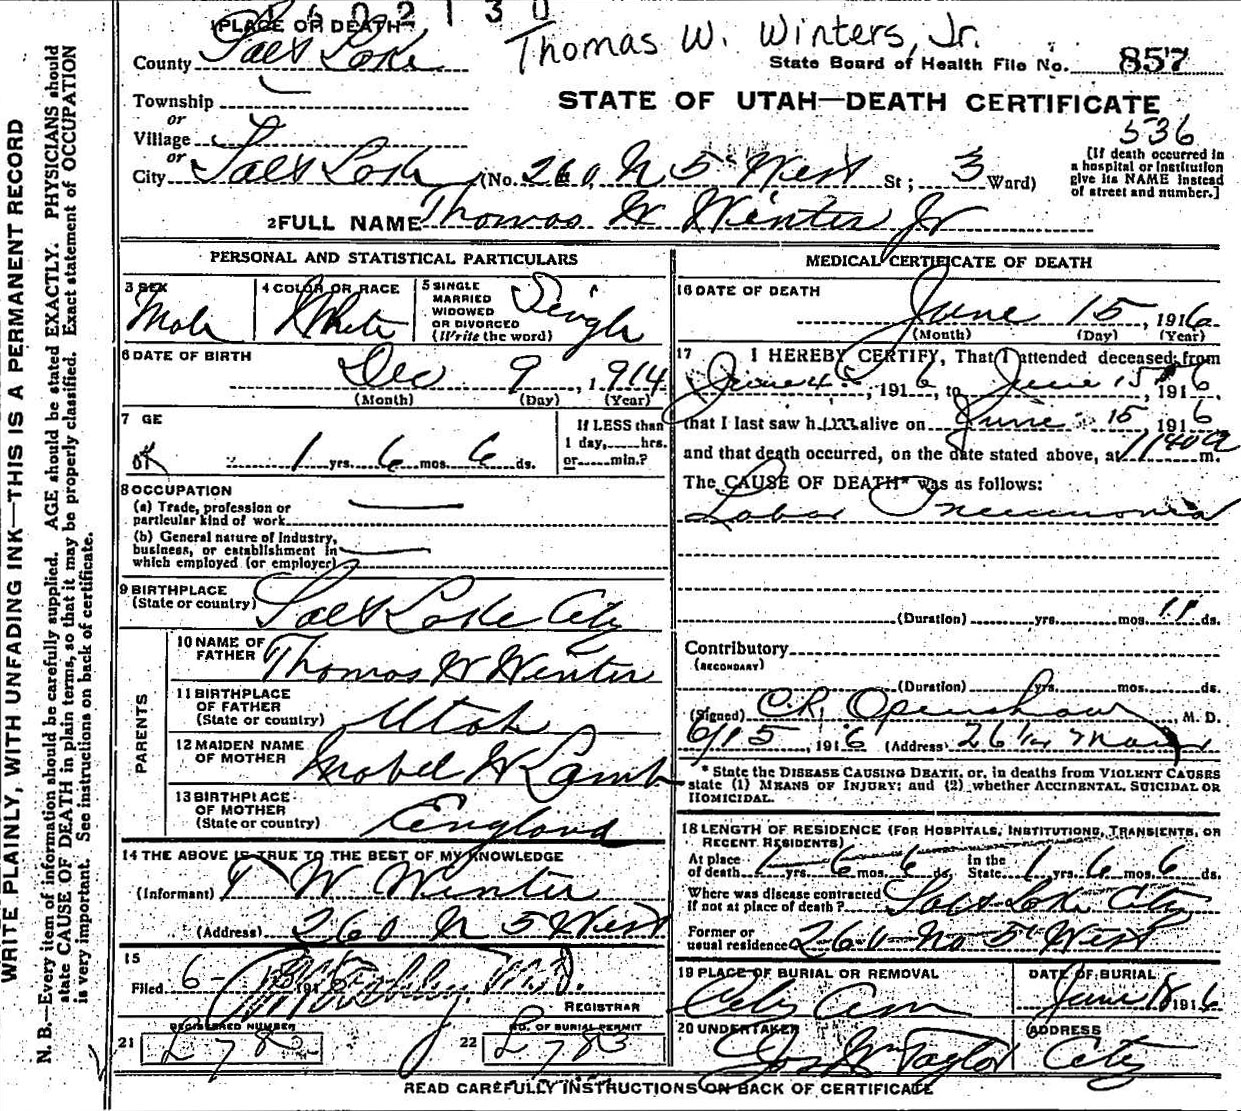 1 PLACE OF DEATH
Thomas W. Winters, Jr.
County Salt Lake
State Board of Health File No. 857
Township
or
STATE OF UTAH—DEATH CERTIFICATE
Village
or
536
City Salt Lake (No. 260 N 5 West St; 3 Ward)
[If death occurred in
a hospital or institution
give its NAME instead
of street and number.]
2 FULL NAME Thomas W Winter Jr
PERSONAL AND STATISTICAL PARTICULARS
3 SEX Male
4 COLOR OR RACE White
5 SINGLE
MARRIED
WIDOWED
OR DIVORCED
(Write the word) Single
6 DATE OF BIRTH
Dec 9, 1914
(Month) (Day) (Year)
7 GE
1 yrs. 6 mos. 6 ds.
If LESS than
1 day, hrs.
or min.?
8 OCCUPATION
(a) Trade, profession or
particular kind of work
(b) General nature of industry,
business, or establishment in
which employed (or employer)
9 BIRTHPLACE
(State or country) Salt Lake City
PARENTS
10 NAME OF
FATHER Thomas W Winter
11 BIRTHPLACE
OF FATHER
(State or country) Utah
12 MAIDEN NAME
OF MOTHER Mabel W Lamb
13 BIRTHPLACE
OF MOTHER
(State or country) England
14 THE ABOVE IS TRUE TO THE BEST OF MY KNOWLEDGE
(Informant) T W Winter
(Address) 260 N 5 West
15
Filed 6- 191
REGISTRAR
21 REGISTERED NUMBER L 782
22 NO. OF BURIAL PERMIT L 783
MEDICAL CERTIFICATE OF DEATH
16 DATE OF DEATH
June 15, 1916
(Month) (Day) (Year)
17 I HEREBY CERTIFY, That I attended deceased from
June 4, 1916, to June 15, 1916,
that I last saw him alive on June 15, 1916
and that death occurred, on the date stated above, at 1140 a m.
The CAUSE OF DEATH* was as follows:
Lobar Pneumonia
(Duration) yrs. mos. 11 ds.
Contributory
(SECONDARY)
(Duration) yrs. mos. ds.
(Signed) C.R. Openshaw, M. D.
6/15, 1916 (Address) 26 1/2 Main
* State the DISEASE CAUSING DEATH, or, in deaths from VIOLENT CAUSES
state (1) MEANS OF INJURY; and (2) whether ACCIDENTAL, SUICIDAL OR
HOMICIDAL.
18 LENGTH OF RESIDENCE (FOR HOSPITALS, INSTITUTIONS, TRANSIENTS, OR
RECENT RESIDENTS)
At place
of death 1 yrs. 6 mos. 6 ds. In the
State 1 yrs. 6 mos. 6 ds.
Where was disease contracted
if not at place of death? Salt Lake City
Former or
usual residence 260 No 5 West
19 PLACE OF BURIAL OR REMOVAL
City Cem
DATE OF BURIAL
June 18 1916
20 UNDERTAKER
Jos W Taylor
ADDRESS
City
READ CAREFULLY INSTRUCTIONS ON BACK OF CERTIFICATE
WRITE PLAINLY, WITH UNFADING INK—THIS IS A PERMANENT RECORD
N. B.—Every item of information should be carefully supplied. AGE should be stated EXACTLY. PHYSICIANS should
state CAUSE OF DEATH in plain terms, so that it may be properly classified. Exact statement of OCCUPATION
is very important. See instructions on back of certificate.